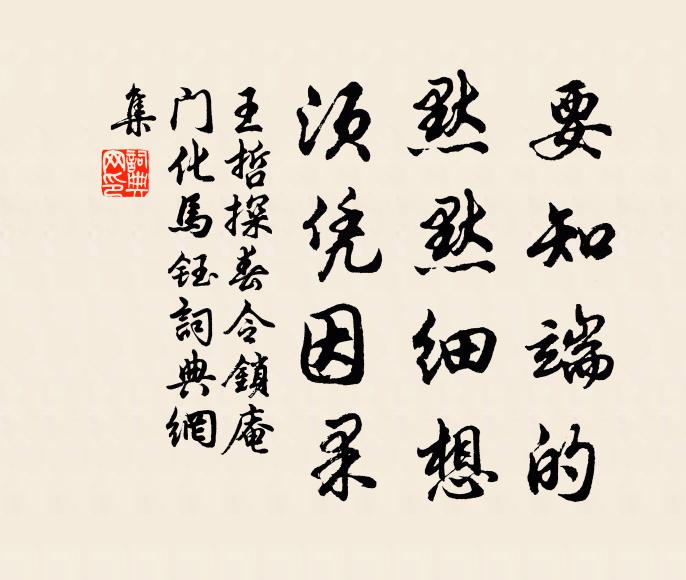 要知端的
默默细想
须凭因果
王哲探春令鎖庵
门化馬鈺詞典網
集
詞典
网印